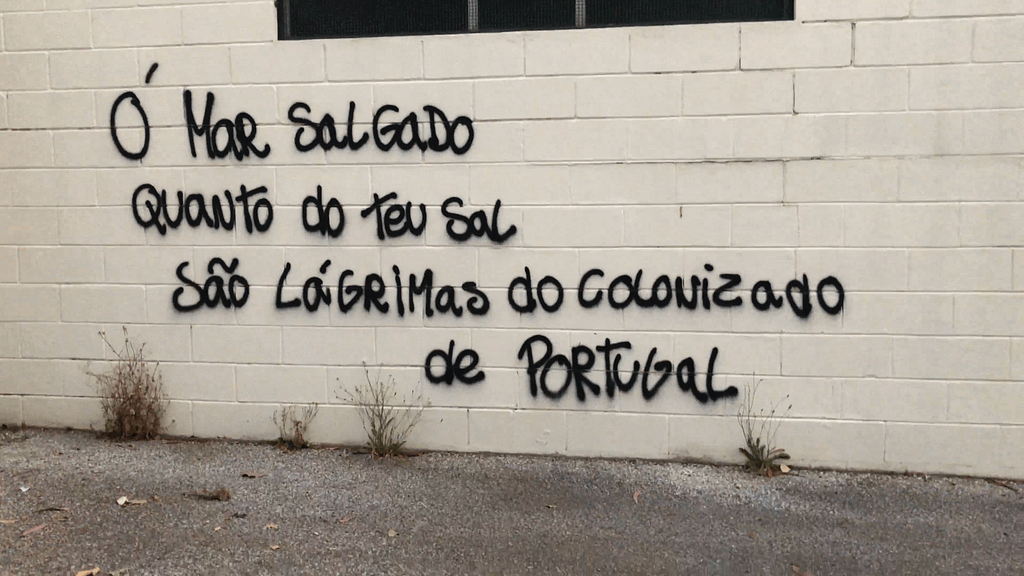 Ó MAR SALGADO
QUANTO do TEU SAL
SÃO LÁGRIMAS do COLONIZADO
de PORTUGAL